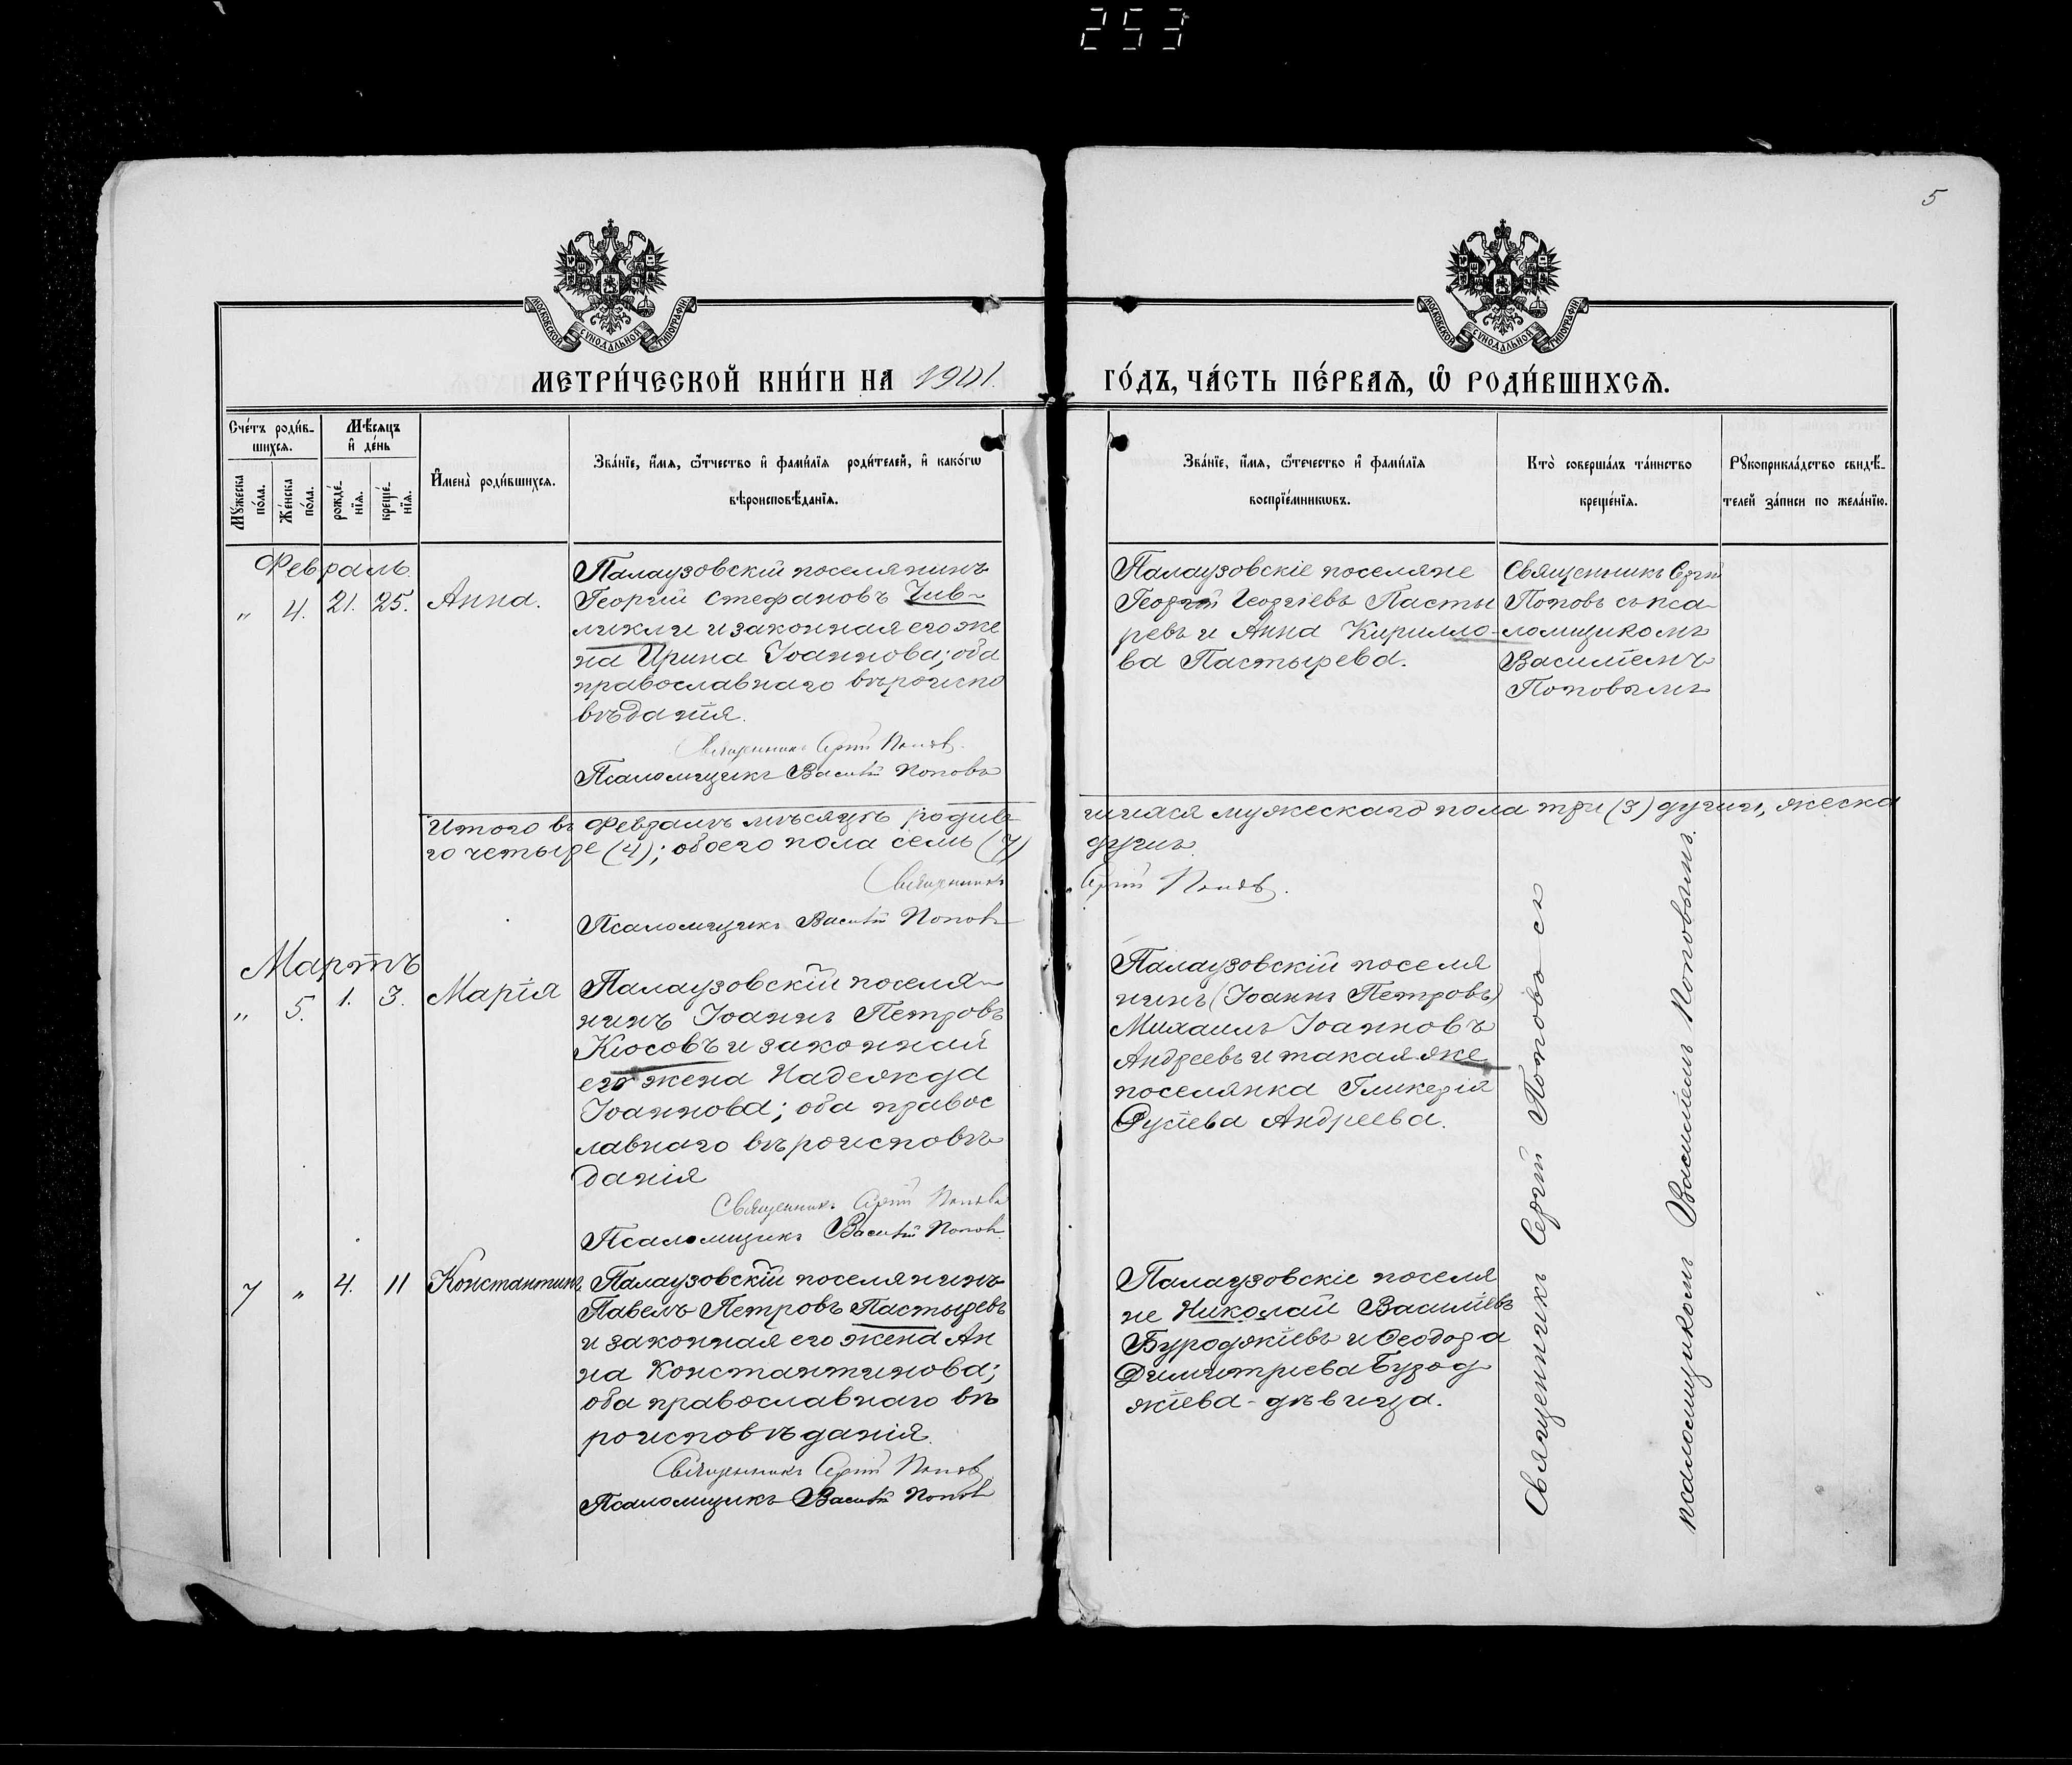 253
5
МОСКОВСКОЙ СѴНОДАЛЬНОЙ ТИПОГРАФІИ
МОСКОВСКОЙ СѴНОДАЛЬНОЙ ТИПОГРАФІИ
МЕТРИ́ЧЕСКОЙ КНИ́ГИ НА 1901.
ГО́ДЪ, ЧА́СТЬ ПЕ́РВАѦ, Ѡ҆ РОДИ́ВШИХСѦ.
Сче́тъ роди́в-
шихсѧ.
Мꙋ́жеска по́ла.
Же́нска по́ла.
Мѣ́сѧцъ
и҆ де́нь
рожде́-
нїѧ.
креще́-
нїѧ.
И҆мена̀ роди́вшихсѧ.
Зва́нїе, и҆́мѧ, ѻ҆́тчество и҆ фами́лїѧ роди́телей, и҆ како́гѡ
вѣроисповѣ́данїѧ.
Зва́нїе, и҆́мѧ, ѻ҆те́чество и҆ фами́лїѧ
воспрїе́мникѡвъ.
Кто̀ соверша́лъ та́инство
креще́нїѧ.
Рꙋкоприкла́дство свидѣ́-
телей за́писи по жела́нїю.
Февраль.
" 4. 21. 25. Анна.
Палаузовскій поселянинъ
Георгій Стефановъ Чив-
ликли и законная его же
на Ирина Іоаннова; оба
православнаго вѣроиспо
вѣданія.
Священникъ Сергій Поповъ.
Псаломщикъ Василій Поповъ
Палаузовскіе поселяне
Георгій Георгіевъ Пасты
ревъ и Анна Кирилло-
ва Пастырева.
Священникъ Сергій
Поповъ съ пса-
ломщикомъ
Василіемъ
Поповымъ
Итого въ Февралѣ мѣсяцѣ родив
шихся мужескаго пола три (3) души, женска
го четыре (4); обоего пола семь (7)
душъ.
Священникъ Сергій Поповъ.
Псаломщикъ Василій Поповъ
Мартъ
" 5. 1. 3. Марія
Палаузовскій поселя-
нинъ Іоаннъ Петровъ
Кюсовъ и законная
его жена Надежда
Іоаннова; оба правос
лавнаго вѣроисповѣ
данія
Священникъ Сергій Поповъ
Псаломщикъ Василій Поповъ
Палаузовскій поселя
нинъ (Іоаннъ Петровъ)
Михаилъ Іоанновъ
Андреевъ и такая же
поселянка Гликерія
Андреева.
7 " 4. 11 Константинъ
Палаузовскій поселянинъ
Павелъ Петровъ Пастыревъ
и законная его жена Ан
на Константинова;
оба православнаго вѣ
роисповѣданія.
Священникъ Сергій Поповъ
Псаломщикъ Василій Поповъ
Палаузовскіе поселя
не Николай Василіевъ
Буроджіевъ и Ѳеодора
Димитріева Бурод
жіева - дѣвица.
Священникъ Сергій Поповъ съ
псаломщикомъ Василіемъ Поповымъ.